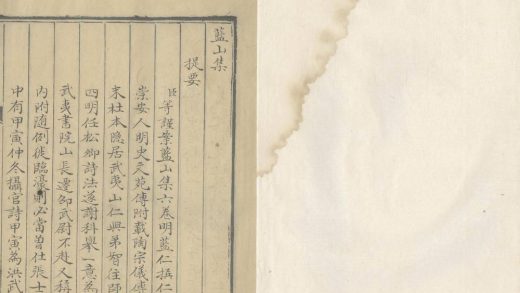 藍山集
提要
臣等謹案藍山集六卷明藍仁撰仁
崇安人明史文苑傳附載陶宗儀傳
末杜本隱居武夷山仁與弟智往師
四明任松卿詩法遂謝科舉一意為
武夷書院山長遷邵武尉不赴又稱
内附随例徙臨濠則必當曾仕張士
中有甲寅仲冬攝官詩甲寅為洪武